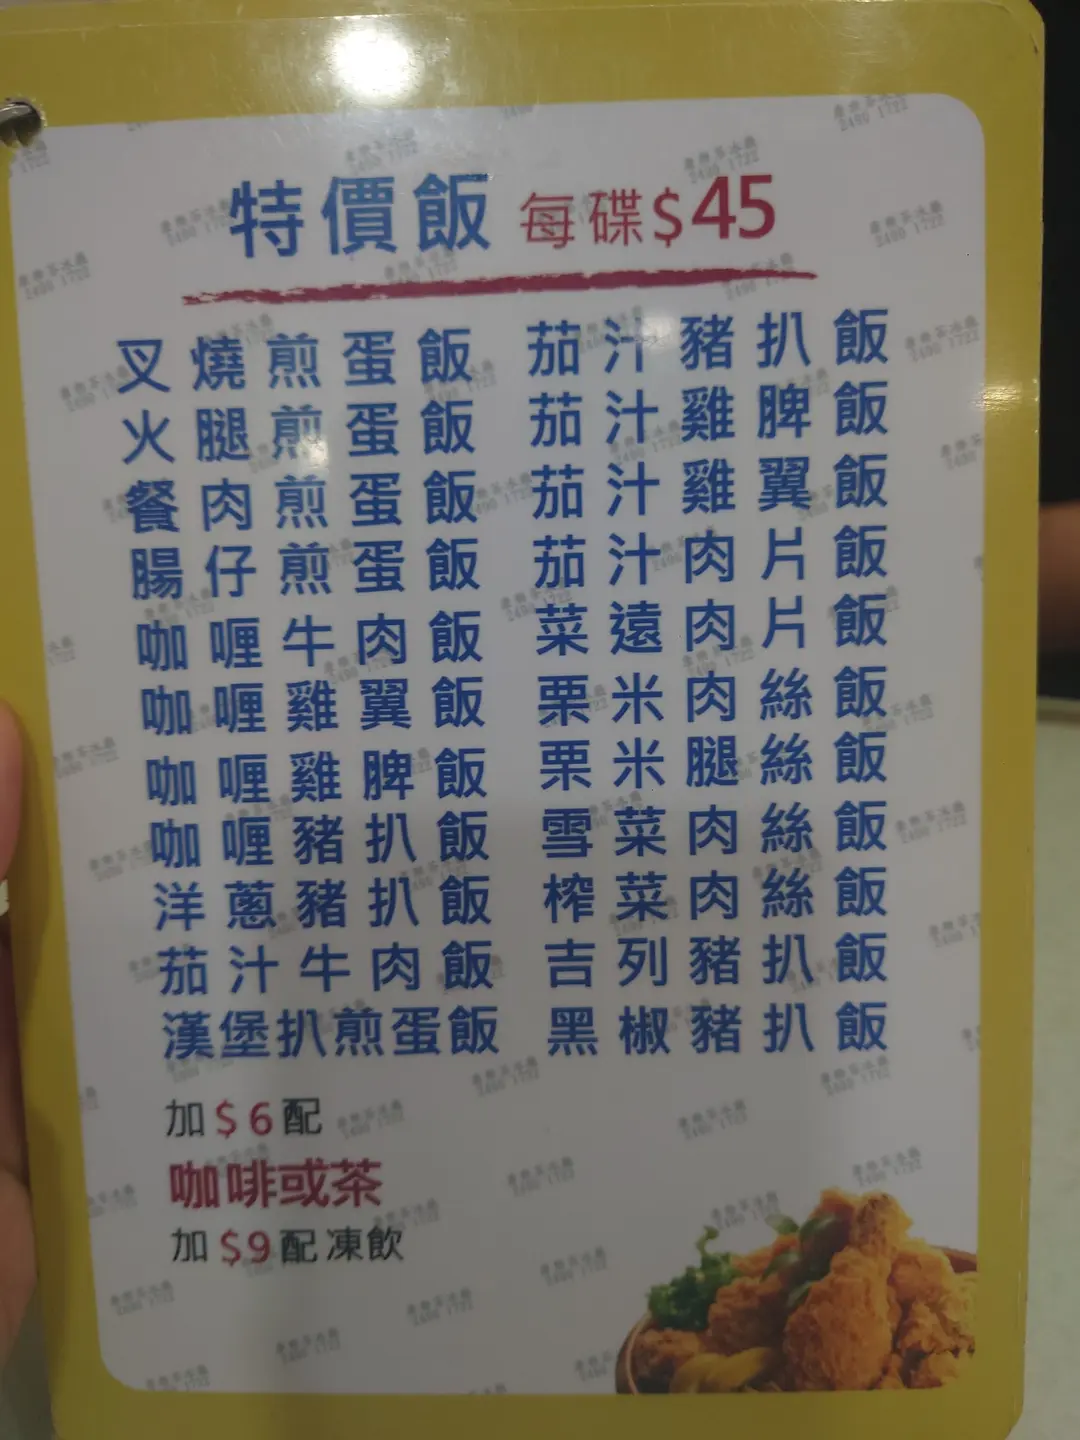 特價飯 每碟$45
叉燒煎蛋飯
火腿煎蛋飯
餐肉煎蛋飯
腸仔煎蛋飯
咖喱牛肉飯
咖喱雞翼飯
咖喱雞脾飯
咖喱豬扒飯
洋蔥豬扒飯
茄汁牛肉飯
漢堡扒煎蛋飯
茄汁豬扒飯
茄汁雞脾飯
茄汁雞翼飯
茄汁肉片飯
菜遠肉片飯
栗米肉絲飯
栗米腿絲飯
雪菜肉絲飯
榨菜肉絲飯
吉列豬扒飯
黑椒豬扒飯
加$6配
咖啡或茶
加$9配凍飲
2490 1722